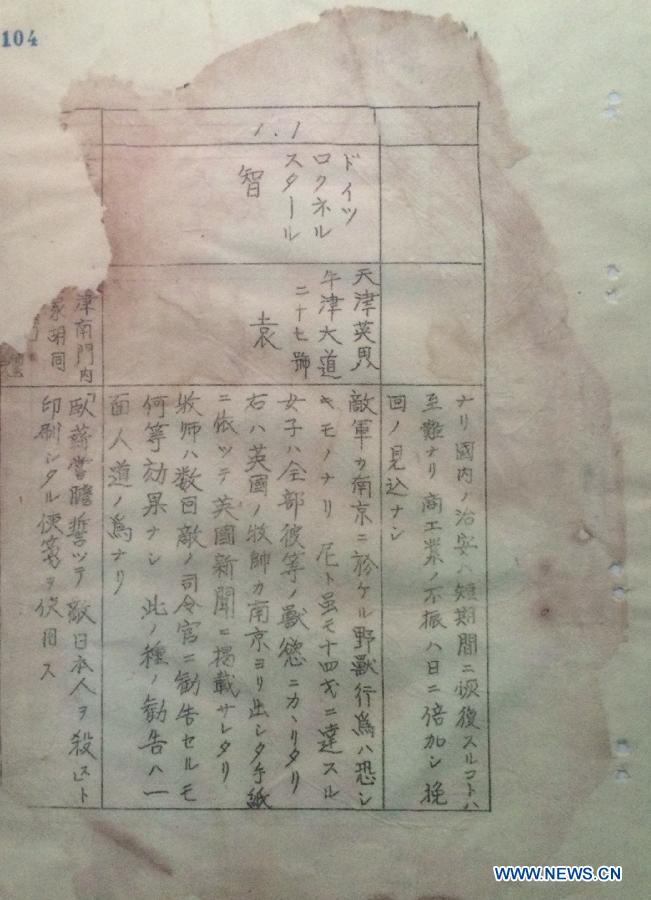 104
ナリ國内ノ治安ハ短期間ニ恢復スルコトハ
至難ナリ商工業ノ不振ハ日ニ倍加シ挽
回ノ見込ナシ
1.1
ドイツ
ロクネル
スタール
智
天津英界
牛津大道
二十七號
袁
敵軍カ南京ニ於ケル野獸行爲ハ恐シ
キモノナリ 尼ト虽モ十四才ニ達スル
女子ハ全部彼等ノ獸慾ニカヽリタリ
右ハ英國ノ牧師カ南京ヨリ出シタ手紙
ニ依ツテ英國新聞ニ掲載サレタリ
牧师ハ数回敵ノ司令官ニ勧告セルモ
何等効果ナシ 此ノ種ノ勧告ハ一
面人道ノ爲ナリ
津南門内
家胡同
「臥薪嘗膽誓ツテ敵日本人ヲ殺ス」ト
印刷シタル便箋ヲ使用ス
WWW.NEWS.CN